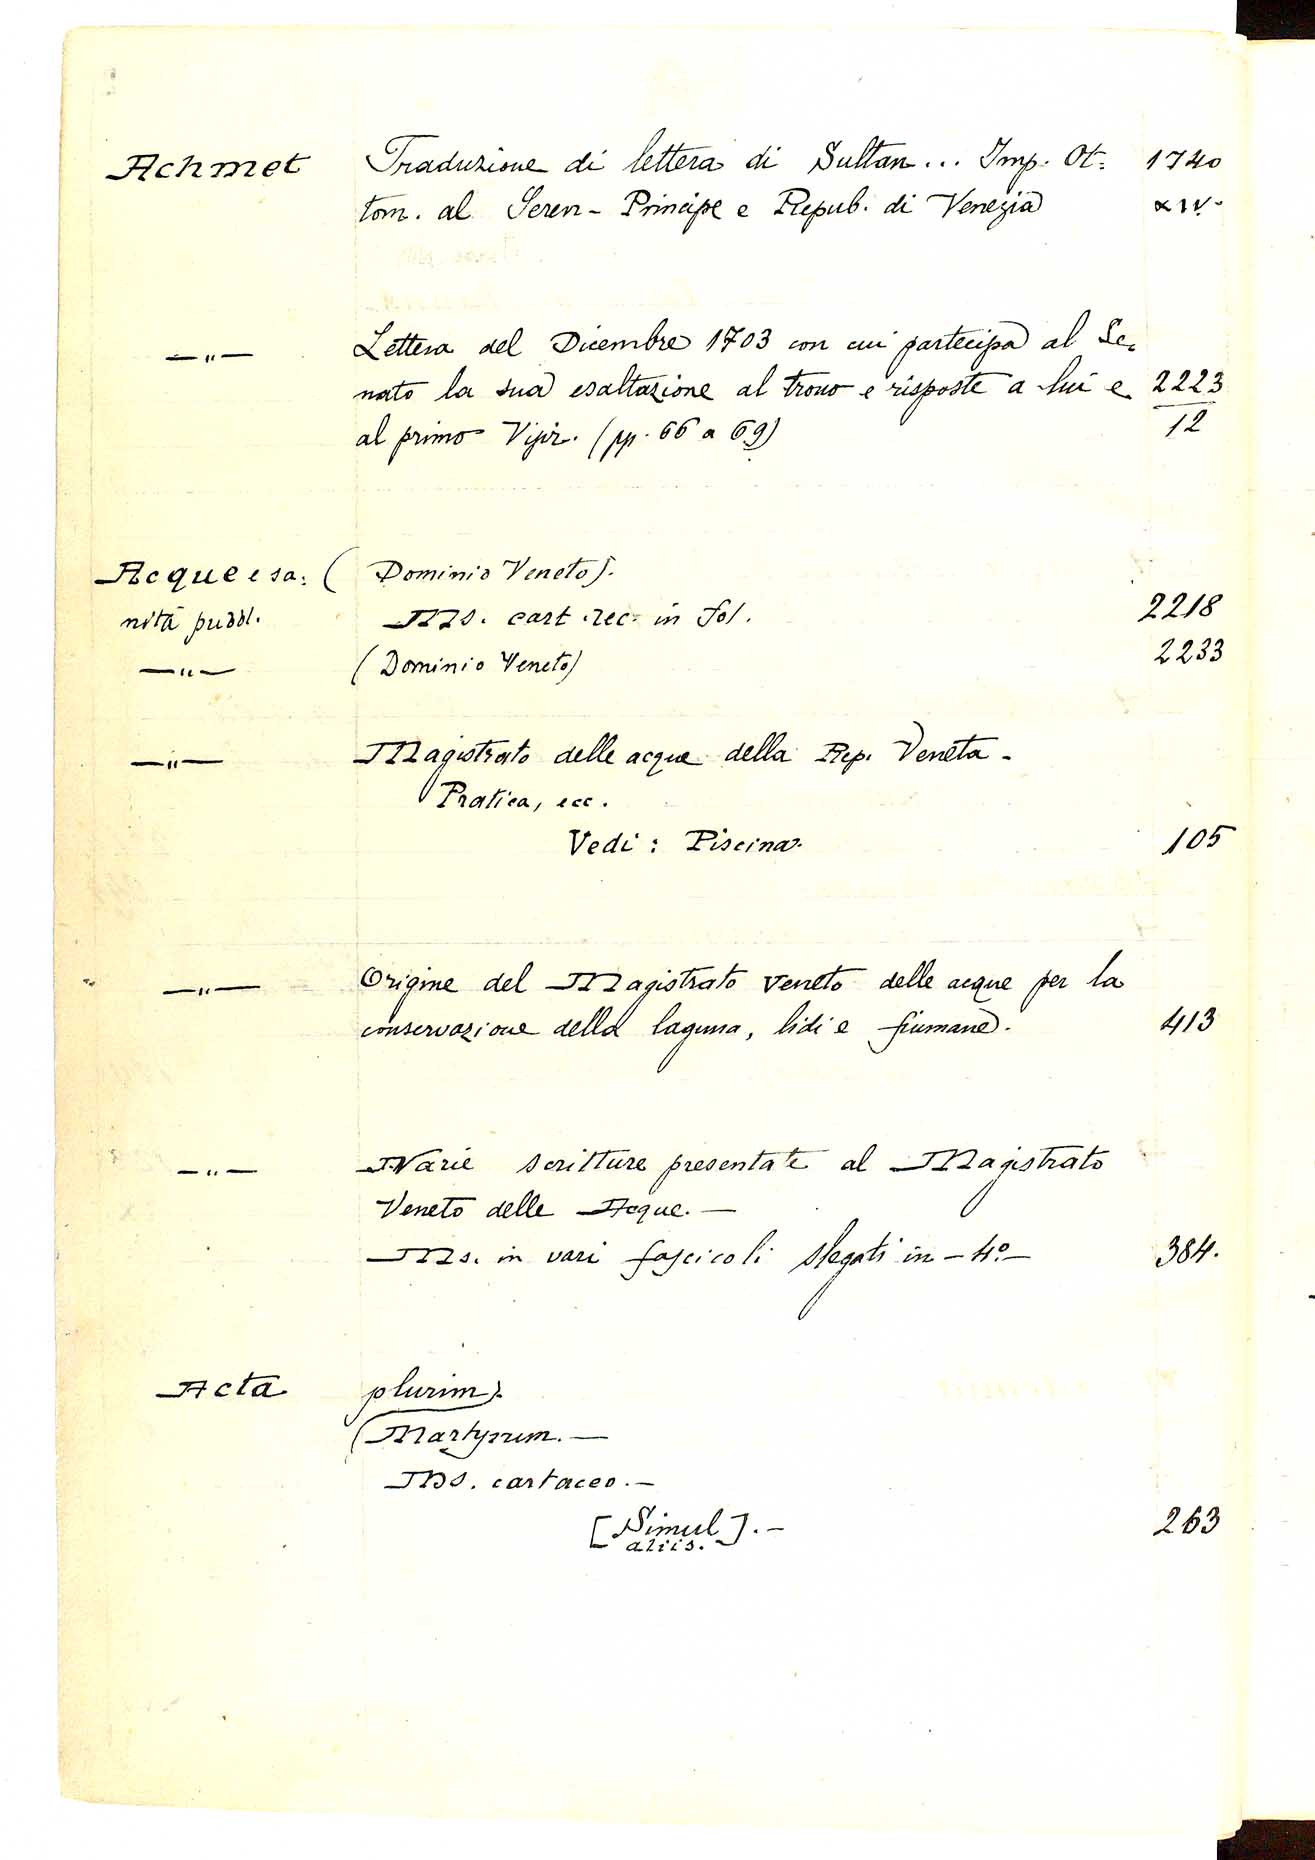 Achmet Traduzione di lettera di Sultan... Imp. Ot: 1740
tom. al Seren- Principe e Repub. di Venezia XIV.
—„— Lettera del Dicembre 1703 con cui partecipa al Se-
nato la sua esaltazione al trono e risposte a lui e 2223
al primo Vizir. (pp. 66 a 69) 12
Acque e sa: (Dominio Veneto).
nità pubbl. Ms. cart. rec. in fol. 2218
—„— (Dominio Veneto) 2233
—„— Magistrato delle acque della Rep. Veneta -
Pratica, ecc.
Vedi: Piscina. 105
—„— Origine del Magistrato veneto delle acque per la
conservazione della laguna, lidi e fiumane. 413
—„— Varie scritture presentate al Magistrato
Veneto delle Acque. —
Ms. in vari fascicoli slegati in - 4.° — 384.
Acta plurim).
(Martyrum. —
Ms. cartaceo. —
[Simul
aliis.]. — 263